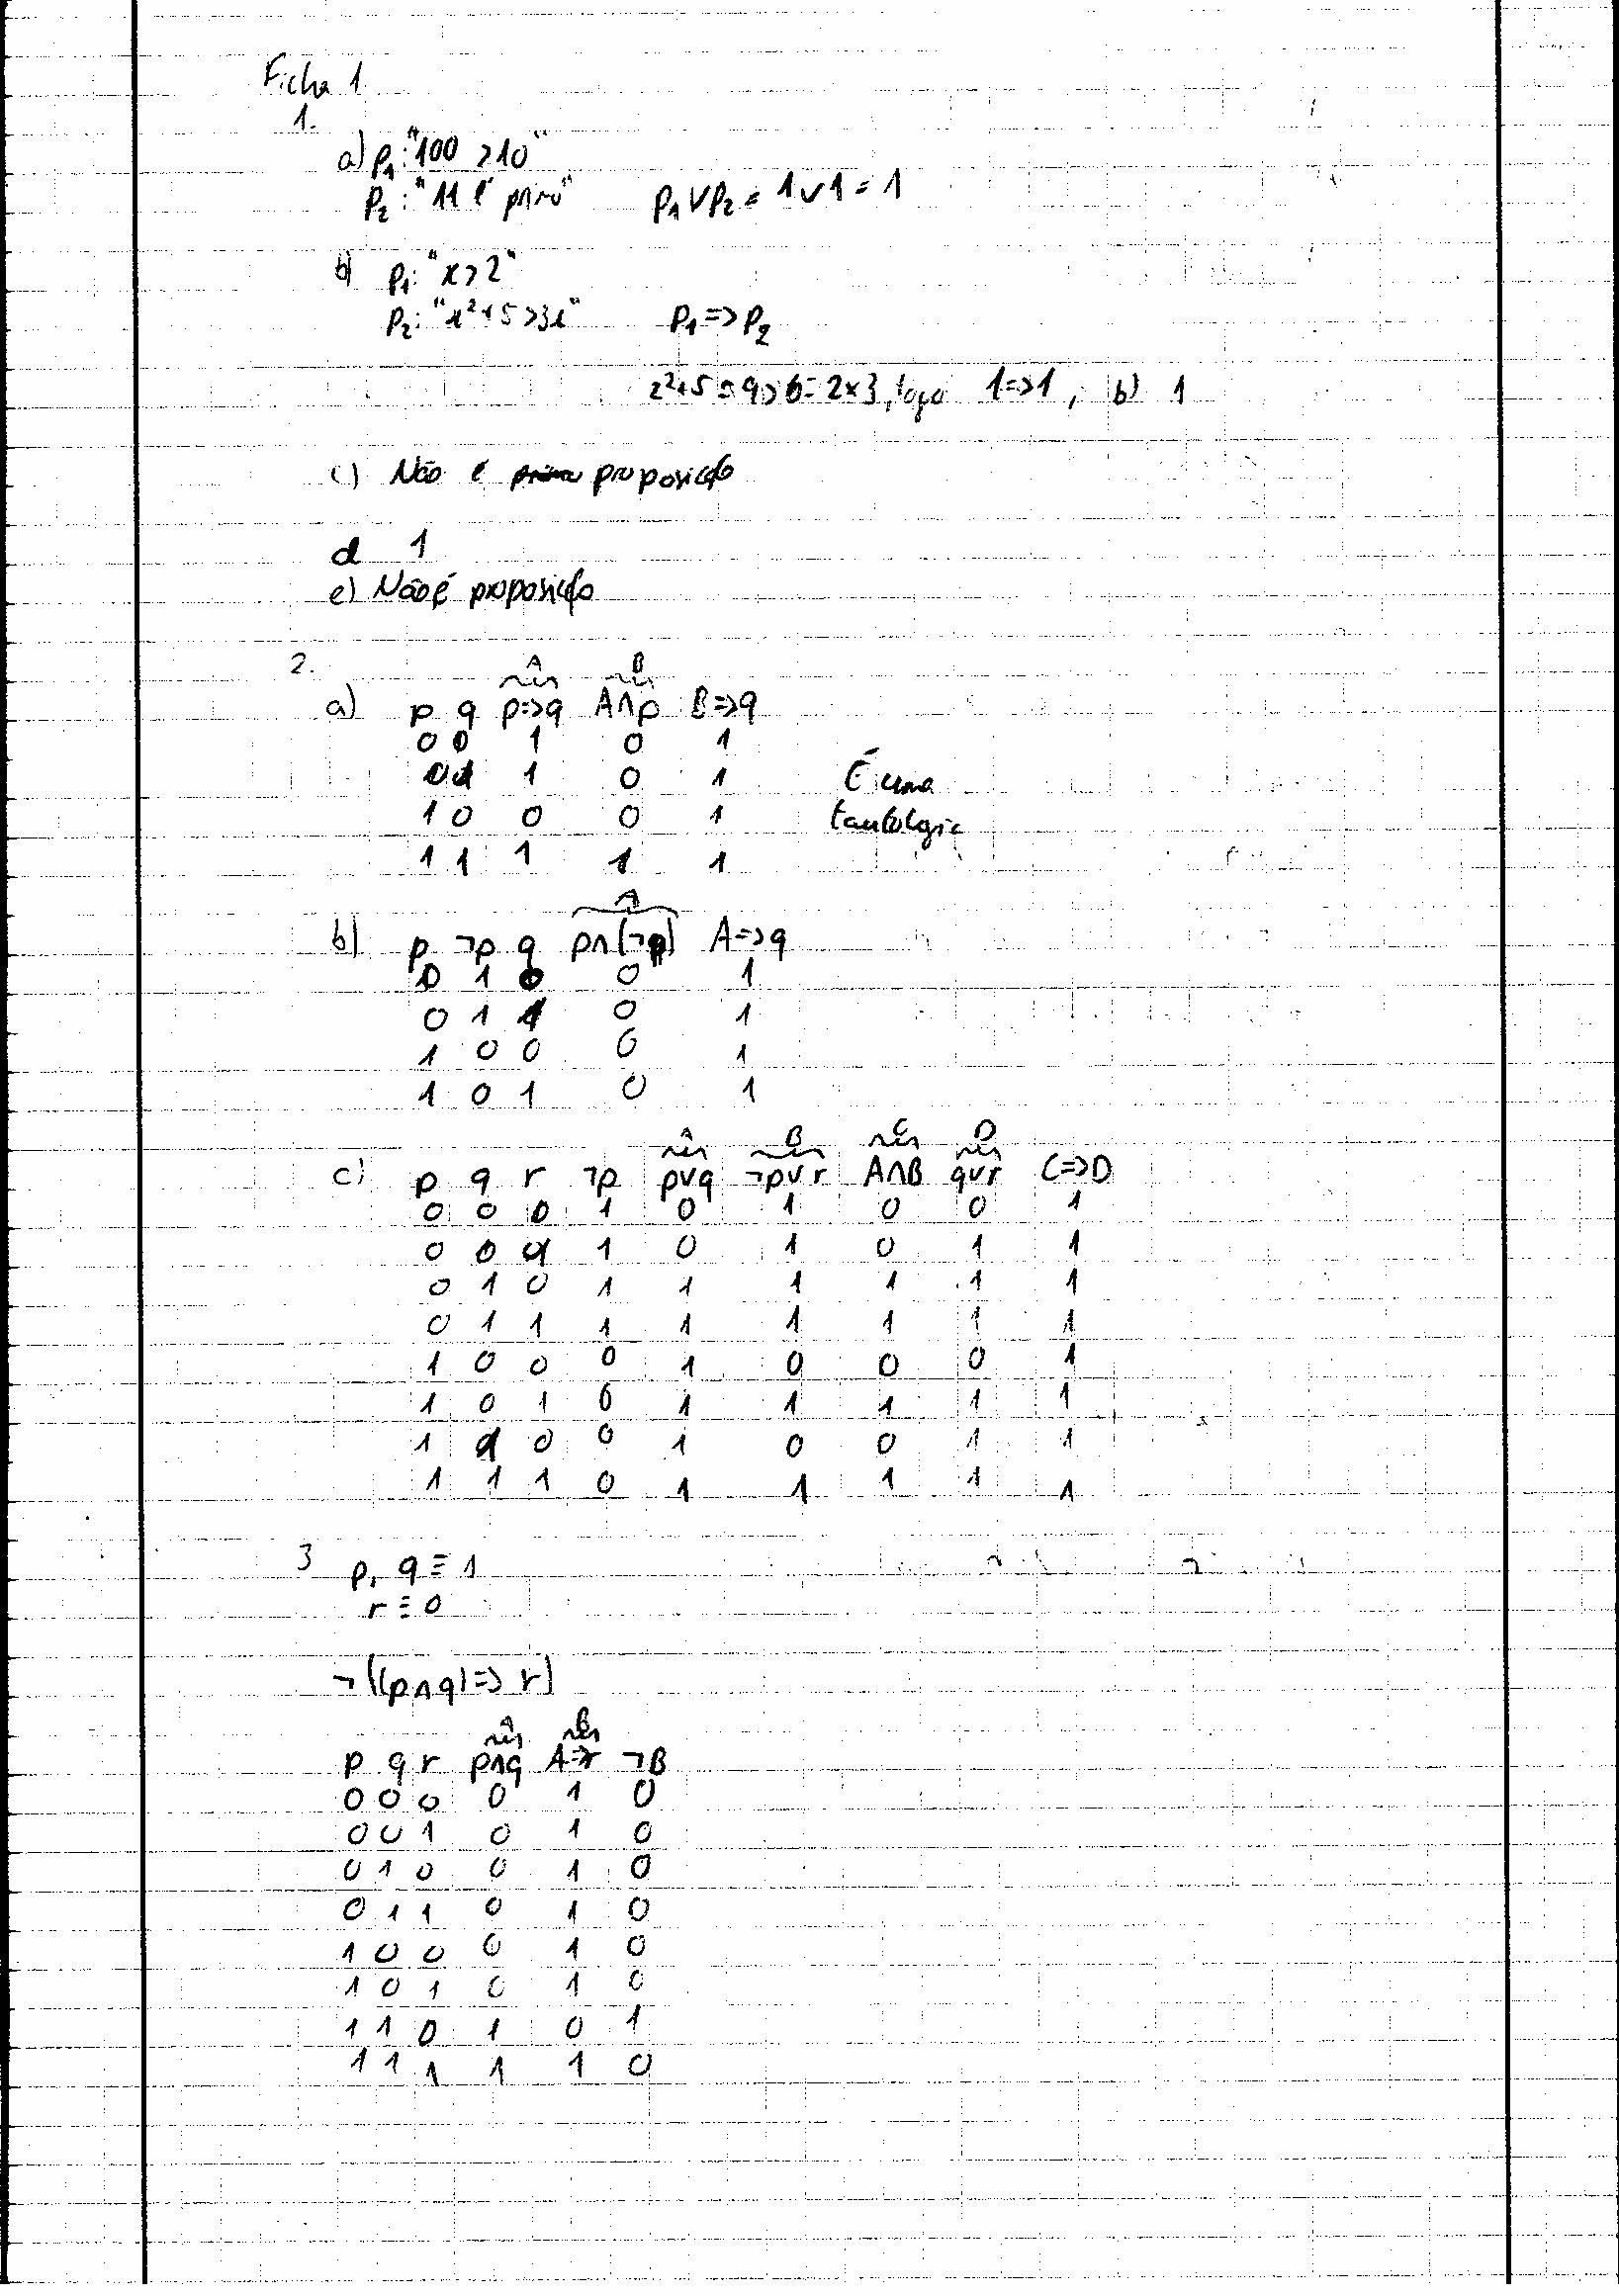 Ficha 1
1.
a) p₁: "100 > 10"
p₂: "11 é primo" p₁ ∨ p₂ = 1 ∨ 1 = 1
b) p₁: "x > 2"
p₂: "x² + 5 > 3x" p₁ => p₂
2² + 5 = 9 > 6 = 2 × 3, logo 1 => 1, b) 1
c) Não é proposição
d 1
e) Não é proposição
2.
A B
a) p q p=>q A∧p B=>q
0 0 1 0 1
0 1 1 0 1 É uma
1 0 0 0 1 tautologia
1 1 1 1 1
A
b) p ¬p q p∧(¬p) A=>q
0 1 0 0 1
0 1 1 0 1
1 0 0 0 1
1 0 1 0 1
A B C D
c) p q r ¬p p∨q ¬p∨r A∧B q∨r C=>D
0 0 0 1 0 1 0 0 1
0 0 1 1 0 1 0 1 1
0 1 0 1 1 1 1 1 1
0 1 1 1 1 1 1 1 1
1 0 0 0 1 0 0 0 1
1 0 1 0 1 1 1 1 1
1 1 0 0 1 0 0 1 1
1 1 1 0 1 1 1 1 1
3 p, q ≡ 1
r ≡ 0
¬((p∧q) => r)
A B
p q r p∧q A=>r ¬B
0 0 0 0 1 0
0 0 1 0 1 0
0 1 0 0 1 0
0 1 1 0 1 0
1 0 0 0 1 0
1 0 1 0 1 0
1 1 0 1 0 1
1 1 1 1 1 0